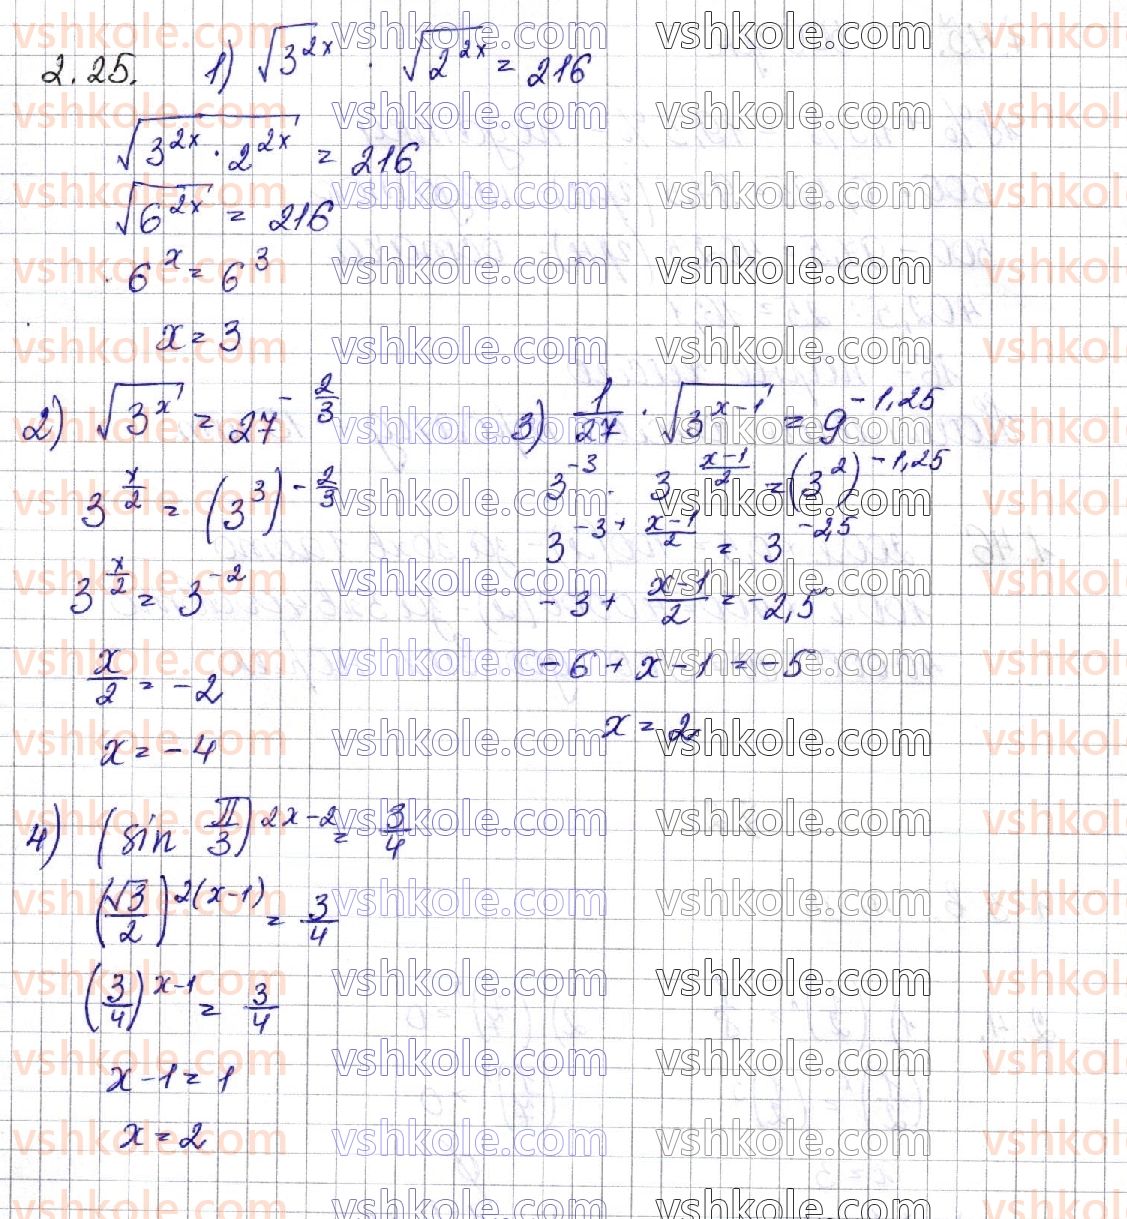 2.25. 1) √(3^(2x)) · √(2^(2x)) = 216
√(3^(2x) · 2^(2x)) = 216
√(6^(2x)) = 216
6^x = 6^3
x = 3
2) √(3^x) = 27^(-2/3)
3^(x/2) = (3^3)^(-2/3)
3^(x/2) = 3^(-2)
x/2 = -2
x = -4
3) 1/27 · √(3^(x-1)) = 9^(-1,25)
3^(-3) · 3^((x-1)/2) = (3^2)^(-1,25)
3^(-3+(x-1)/2) = 3^(-2,5)
-3 + (x-1)/2 = -2,5
-6 + x - 1 = -5
x = 2.
4) (sin π/3)^(2x-2) = 3/4
(√3/2)^(2(x-1)) = 3/4
(3/4)^(x-1) = 3/4
x - 1 = 1
x = 2
vshkole.com